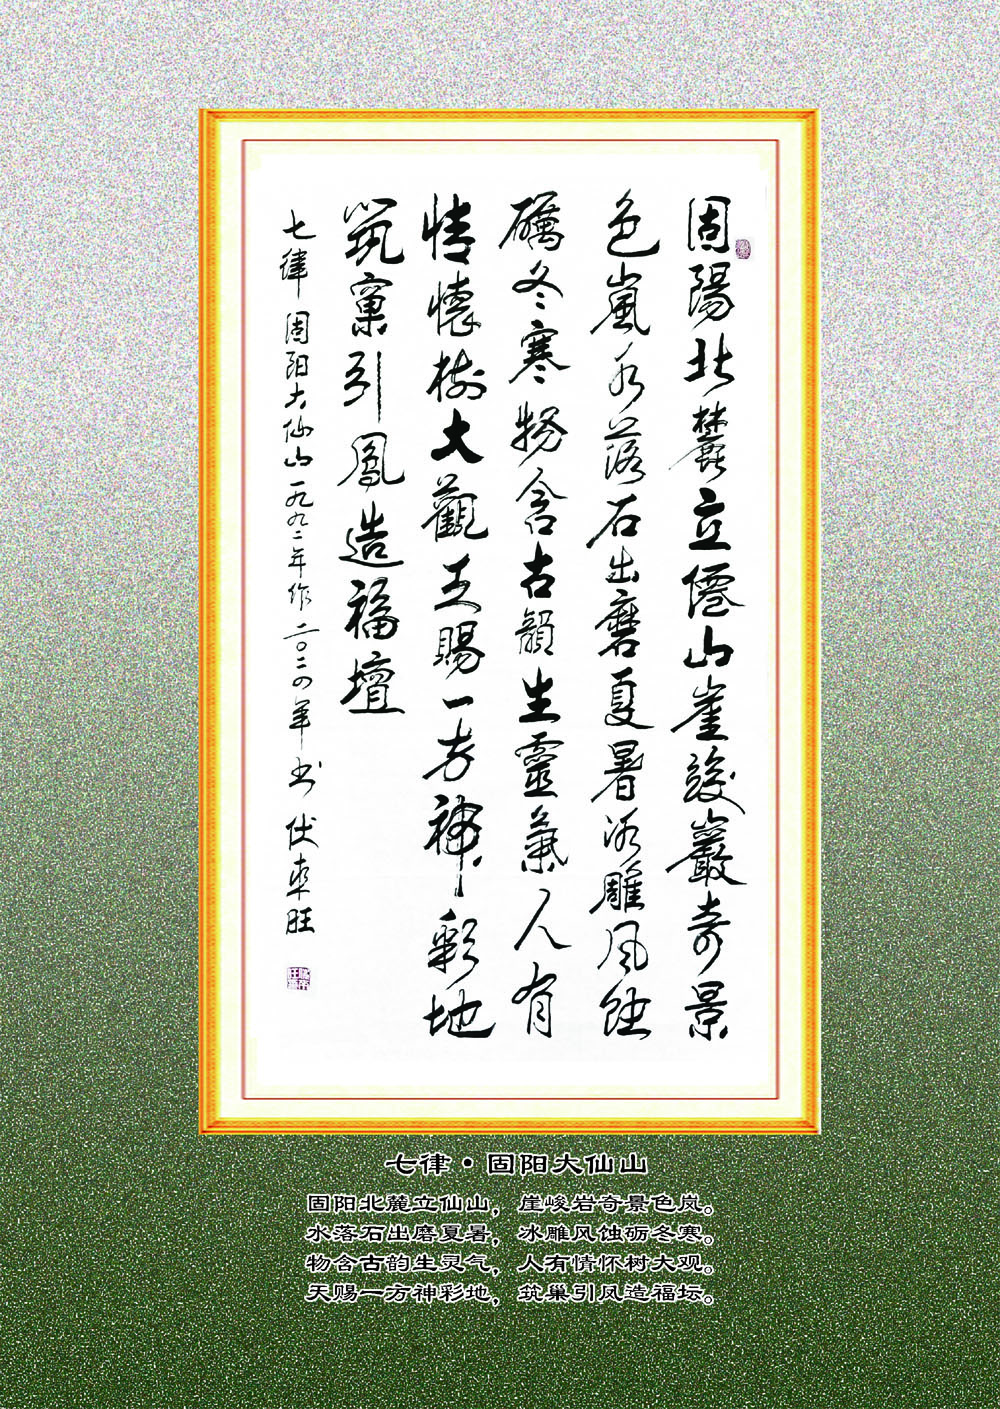 固陽北麓立僊山崖峻巖奇景
色嵐水落石出磨夏暑冰雕风蝕
礪冬寒物含古韻生靈氣人有
情懷樹大觀天賜一方神彩地
筑窠引鳳造福壇
七律 固阳大仙山 一九九二年作 二〇二四年书 伏来旺
七律·固阳大仙山
固阳北麓立仙山，崖峻岩奇景色岚。
水落石出磨夏暑，冰雕风蚀砺冬寒。
物含古韵生灵气，人有情怀树大观。
天赐一方神彩地，筑巢引凤造福坛。